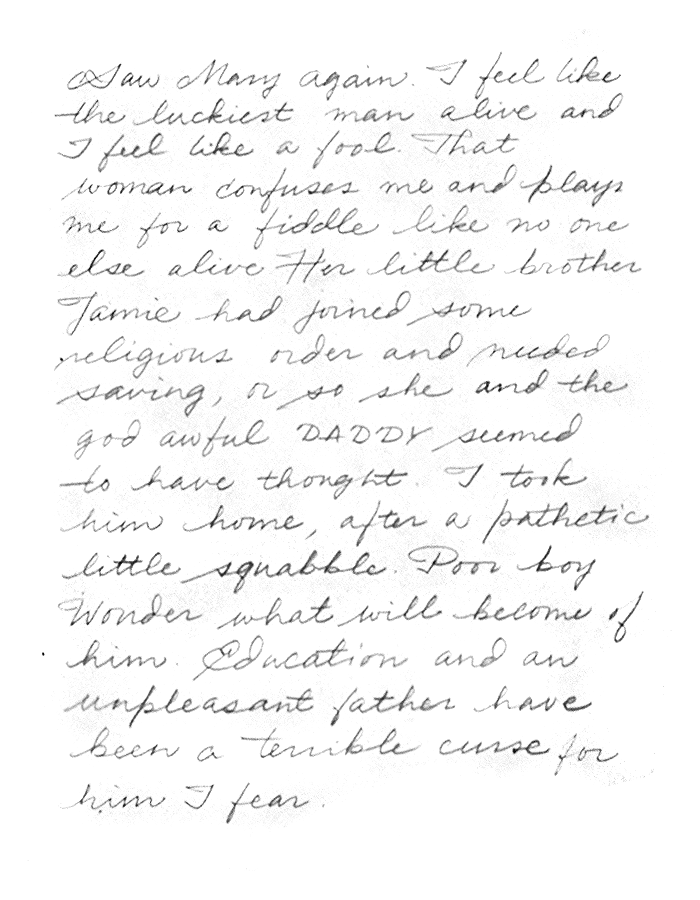 Saw Mary again. I feel like
the luckiest man alive and
I feel like a fool. That
woman confuses me and plays
me for a fiddle like no one
else alive Her little brother
Jamie had joined some
religious order and needed
saving, or so she and the
god awful DADDY seemed
to have thought. I took
him home, after a pathetic
little squabble. Poor boy
Wonder what will become of
him. Education and an
unpleasant father have
been a terrible curse for
him I fear.